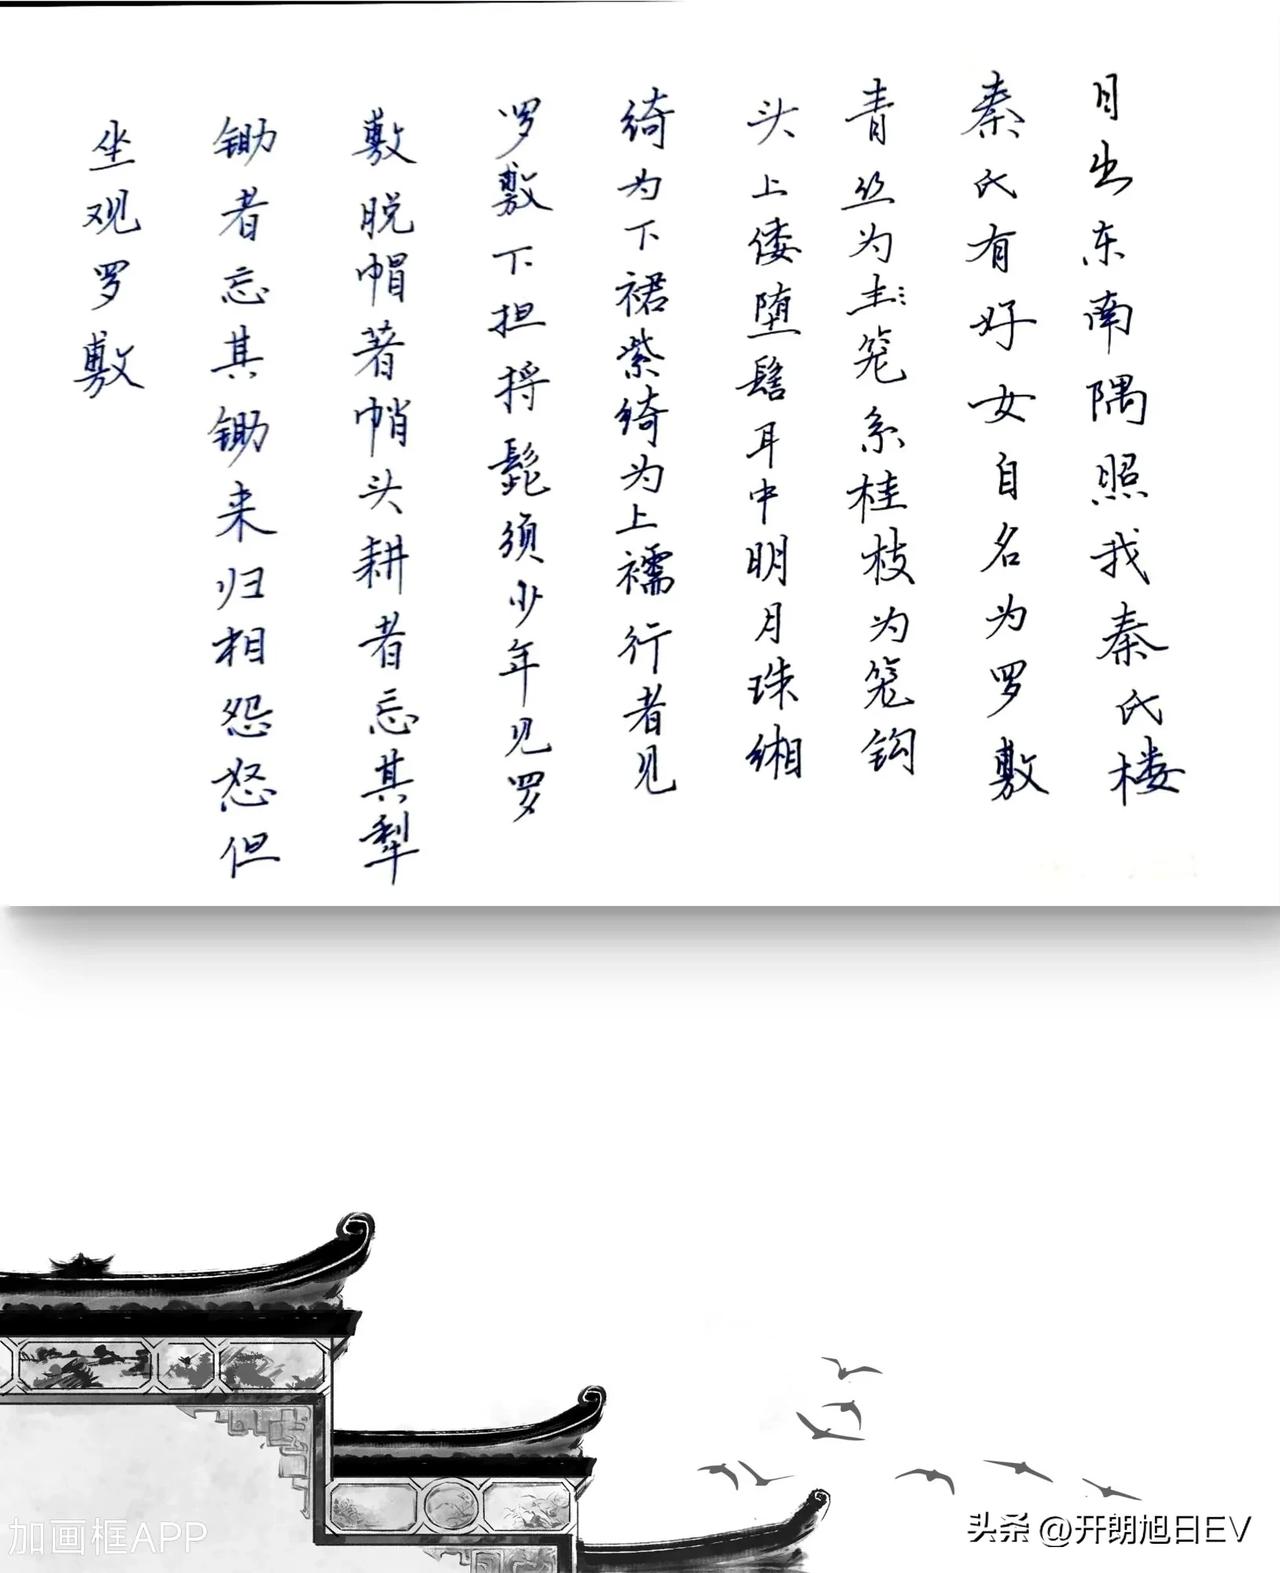 日出东南隅照我秦氏楼
秦氏有好女自名为罗敷
青丝为笼系桂枝为笼钩
头上倭堕髻耳中明月珠缃
绮为下裙紫绮为上襦行者见
罗敷下担捋髭须少年见罗
敷脱帽著帩头耕者忘其犁
锄者忘其锄来归相怨怒但
坐观罗敷
加画框APP
头条 @开朗旭日EV